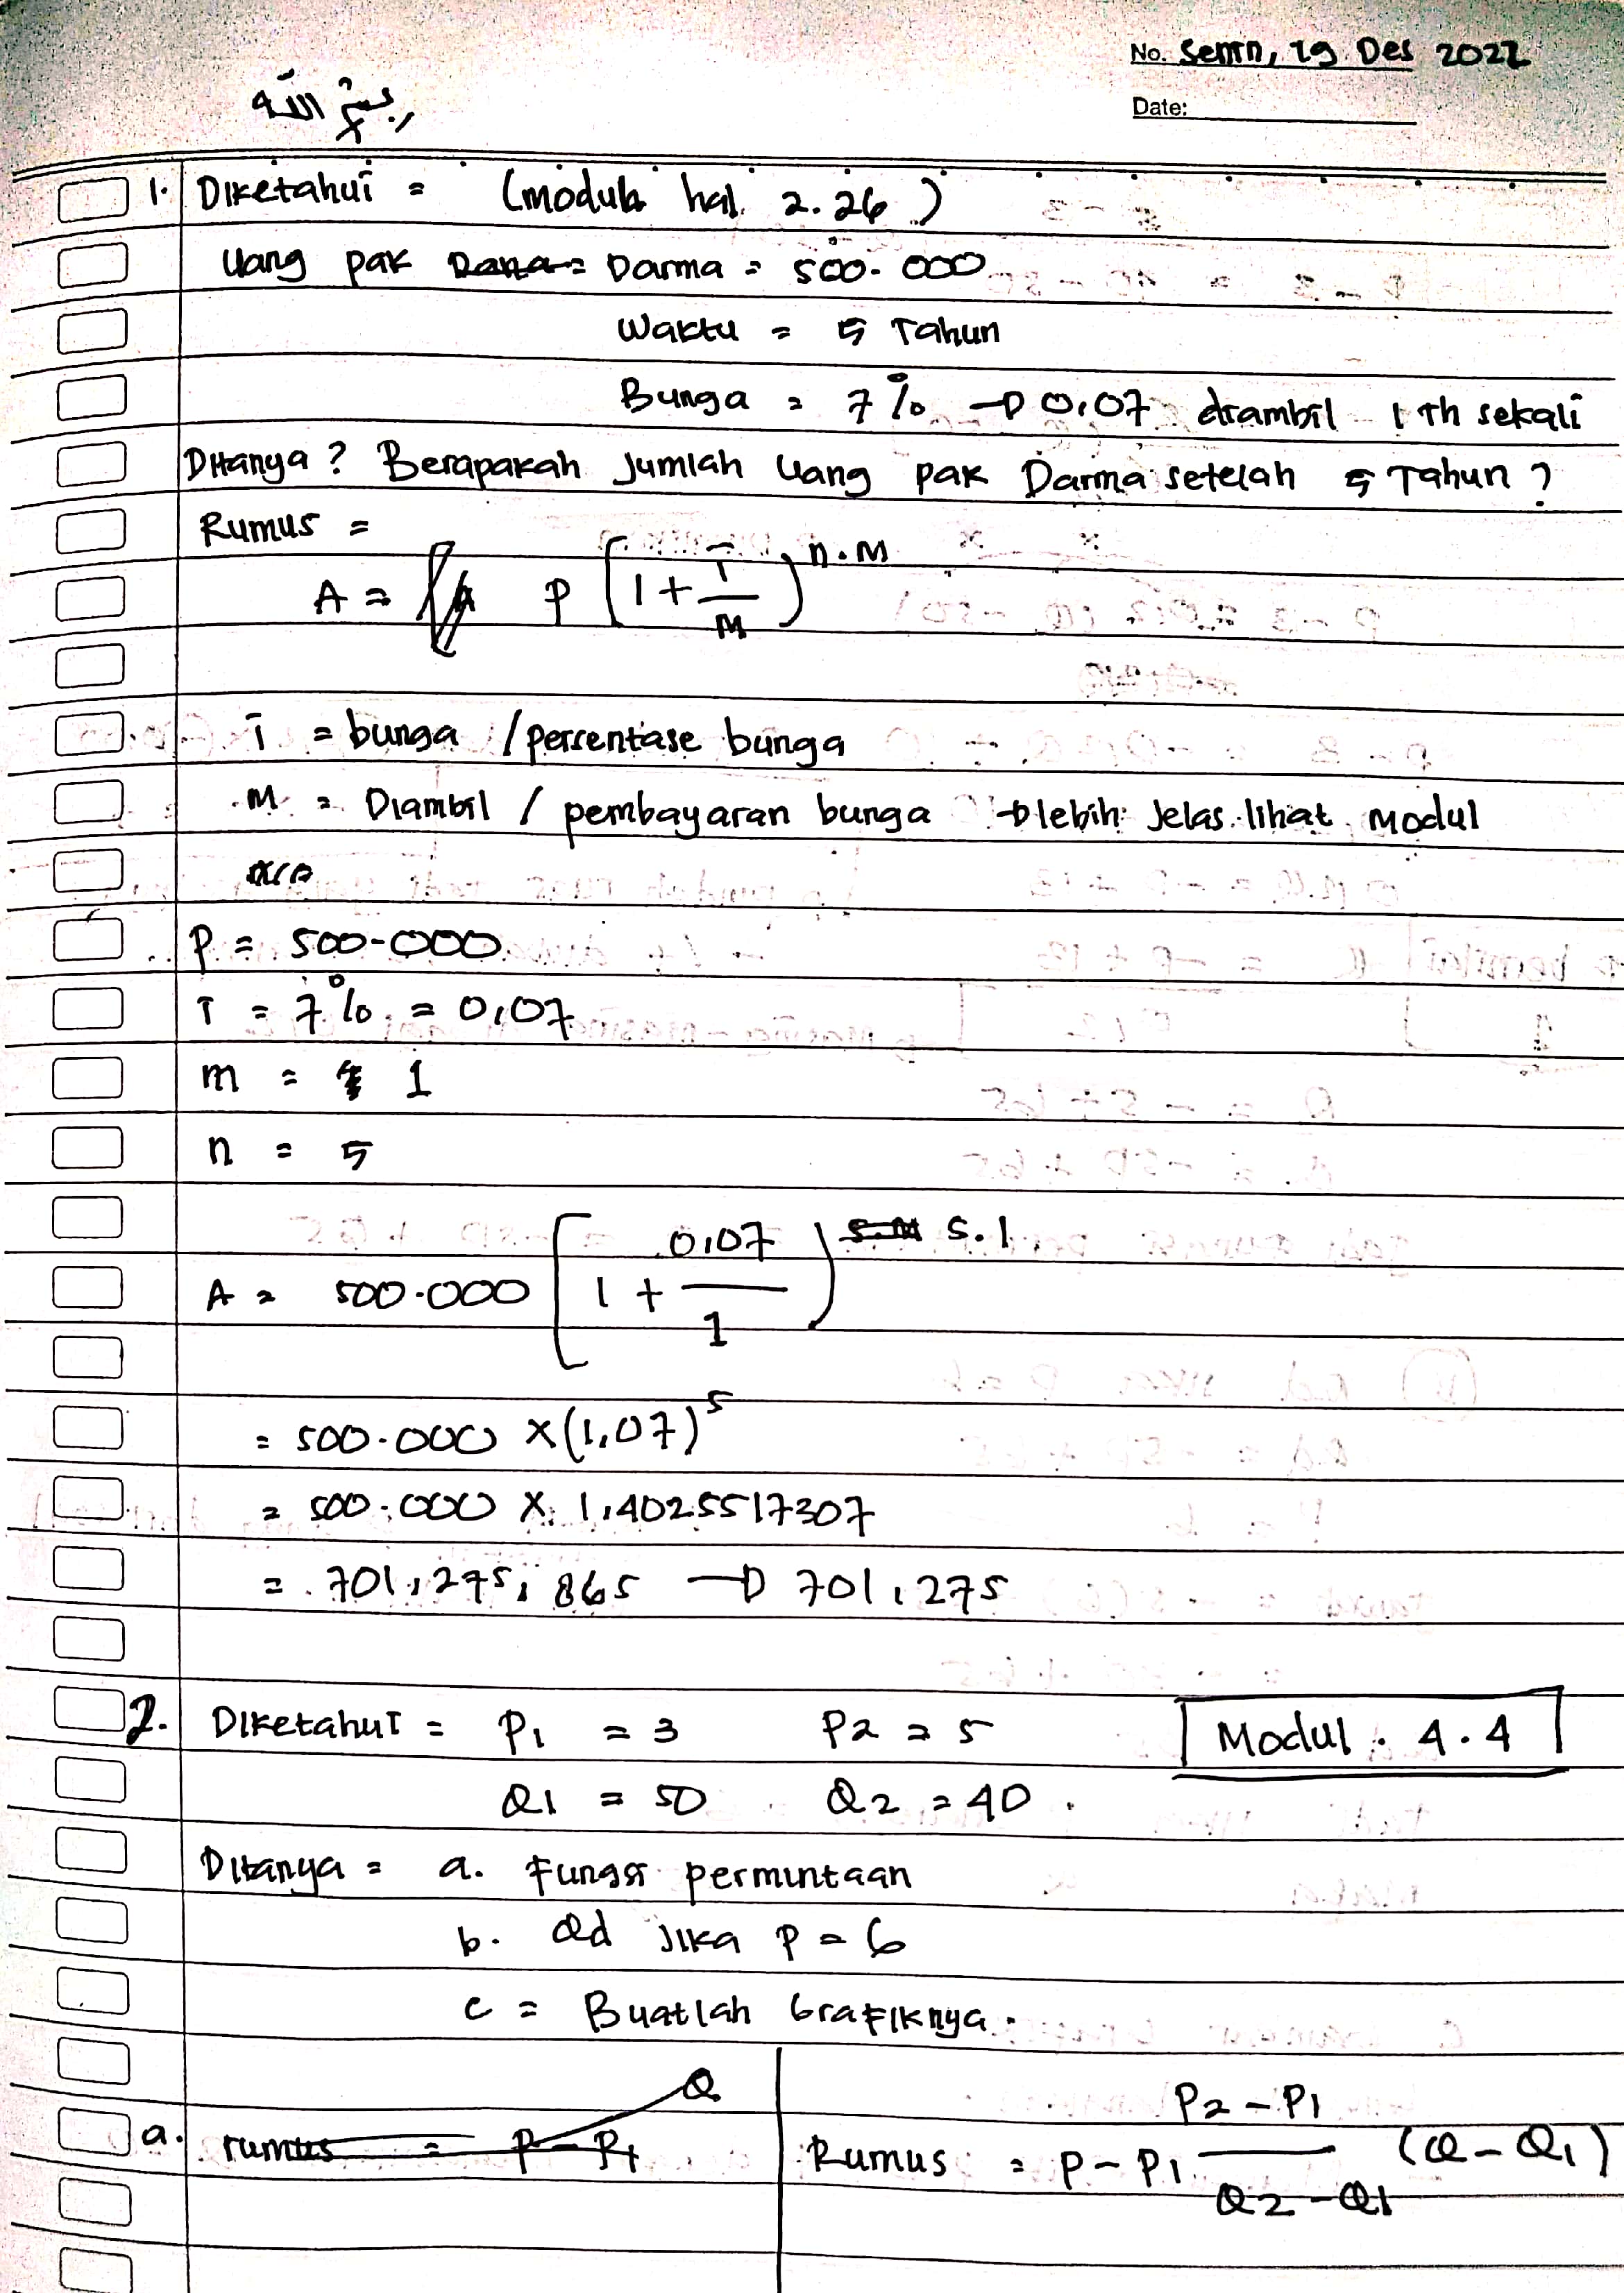 No. Senin, 19 Des 2022
Date:
بسم الله
1. Diketahui = (modul hal. 2.26)
Uang pak Darma = 500.000
Waktu = 5 Tahun
Bunga = 7% → 0,07 diambil 1 th sekali
Ditanya? Berapakah Jumlah Uang pak Darma setelah 5 Tahun?
Rumus =
A = P (1 + i/M)^n.M
i = bunga / persentase bunga
M = Diambil / pembayaran bunga → lebih Jelas lihat Modul
P = 500.000
i = 7% = 0,07
m = 1
n = 5
A = 500.000 [1 + 0,07/1)^5.1
= 500.000 x (1,07)^5
= 500.000 x 1,4025517307
= 701,275,865 → 701,275
2. Diketahui = P1 = 3 P2 = 5 Modul . 4.4
Q1 = 50 Q2 = 40.
Ditanya = a. Fungsi permintaan
b. Qd Jika P = 6
c = Buatlah Grafiknya.
a. rumus = P - P1 Q
Rumus = P - P1 P2 - P1/Q2 - Q1 (Q - Q1)